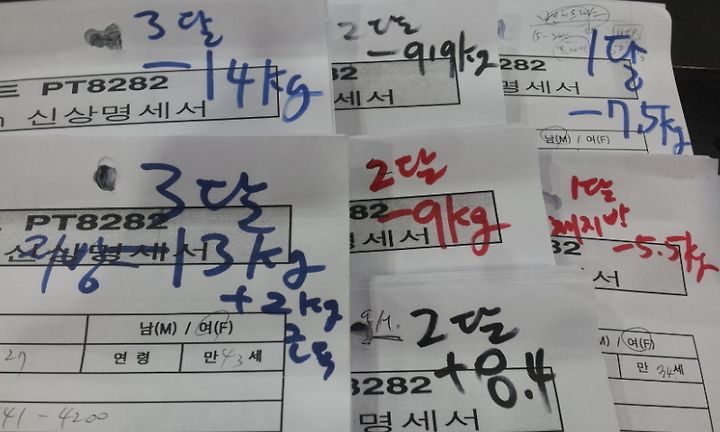 3달
-14kg
트 PT8282
신상명세서
2달
-9.9kg
282
명세서
1달
-7.5kg
8282
명세서
남(M) / 여(F)
3달
-13kg
+2kg
근육
PT8282
신상명세서
남(M) / 여(F)
27
연 령
만 43 세
41-4200
2달
-9kg
82
명세서
1달
체지방
-5.5kg
282
명세서
/ 여(F)
만 34 세
2달
+8.4
8282
명세서